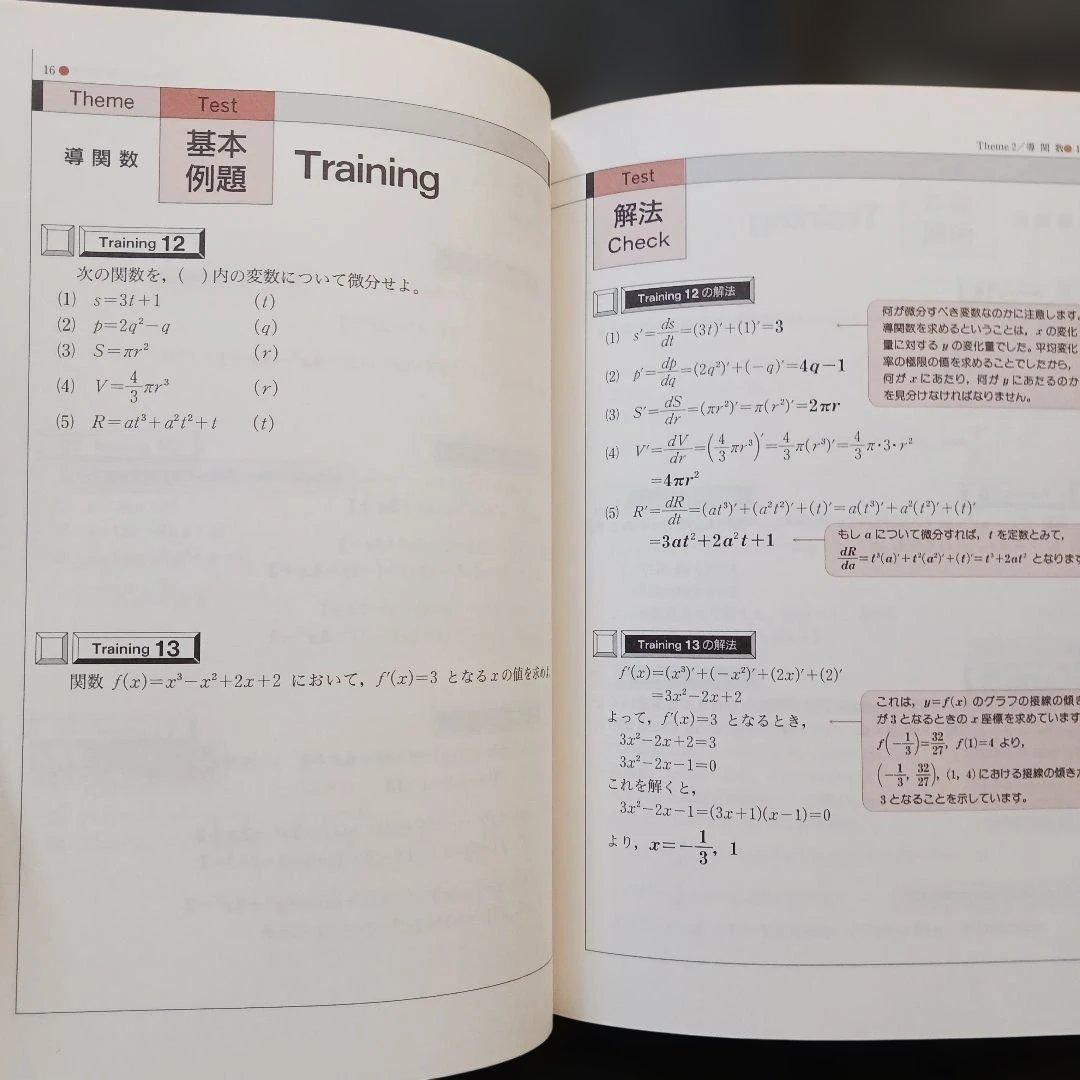 16●
Theme
Test
導関数
基本
例題
Training
Training 12
次の関数を,( )内の変数について微分せよ。
(1) s=3t+1 (t)
(2) p=2q²−q (q)
(3) S=πr² (r)
(4) V=4/3πr³ (r)
(5) R=at³+a²t²+t (t)
Training 13
関数 f(x)=x³−x²+2x+2 において,f′(x)=3 となる x の値を求め
Theme 2/導関数● 1
Test
解法
Check
Training 12 の解法
(1) s′=ds/dt=(3t)′+(1)′=3
(2) p′=dp/dq=(2q²)′+(−q)′=4q−1
(3) S′=dS/dr=(πr²)′=π(r²)′=2πr
(4) V′=dV/dr=(4/3πr³)′=4/3π(r³)′=4/3π·3·r²
=4πr²
(5) R′=dR/dt=(at³)′+(a²t²)′+(t)′=a(t³)′+a²(t²)′+(t)′
=3at²+2a²t+1
何が微分すべき変数なのかに注意します。
導関数を求めるということは,x の変化
量に対する y の変化量でした。平均変化
率の極限の値を求めることでしたから,
何が x にあたり,何が y にあたるのか
を見分けなければなりません。
もし a について微分すれば,t を定数とみて,
dR/da=t³(a)′+t²(a²)′+(t)′=t³+2at² となります
Training 13 の解法
f′(x)=(x³)′+(−x²)′+(2x)′+(2)′
=3x²−2x+2
よって,f′(x)=3 となるとき,
3x²−2x+2=3
3x²−2x−1=0
これを解くと,
3x²−2x−1=(3x+1)(x−1)=0
より,x=−1/3, 1
これは,y=f(x) のグラフの接線の傾き
が3となるときの x 座標を求めています
f(−1/3)=32/27, f(1)=4 より,
(−1/3, 32/27), (1, 4)における接線の傾き
3となることを示しています。